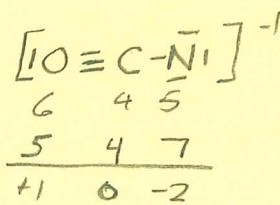 [|O≡C-N̲̅|]⁻¹
6 4 5
5 4 7
+1 0 -2